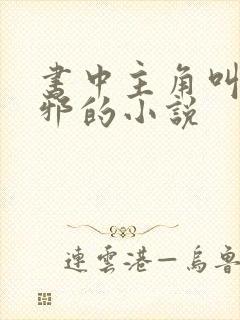 書中主角叫
邪的小說
連雲港—烏魯